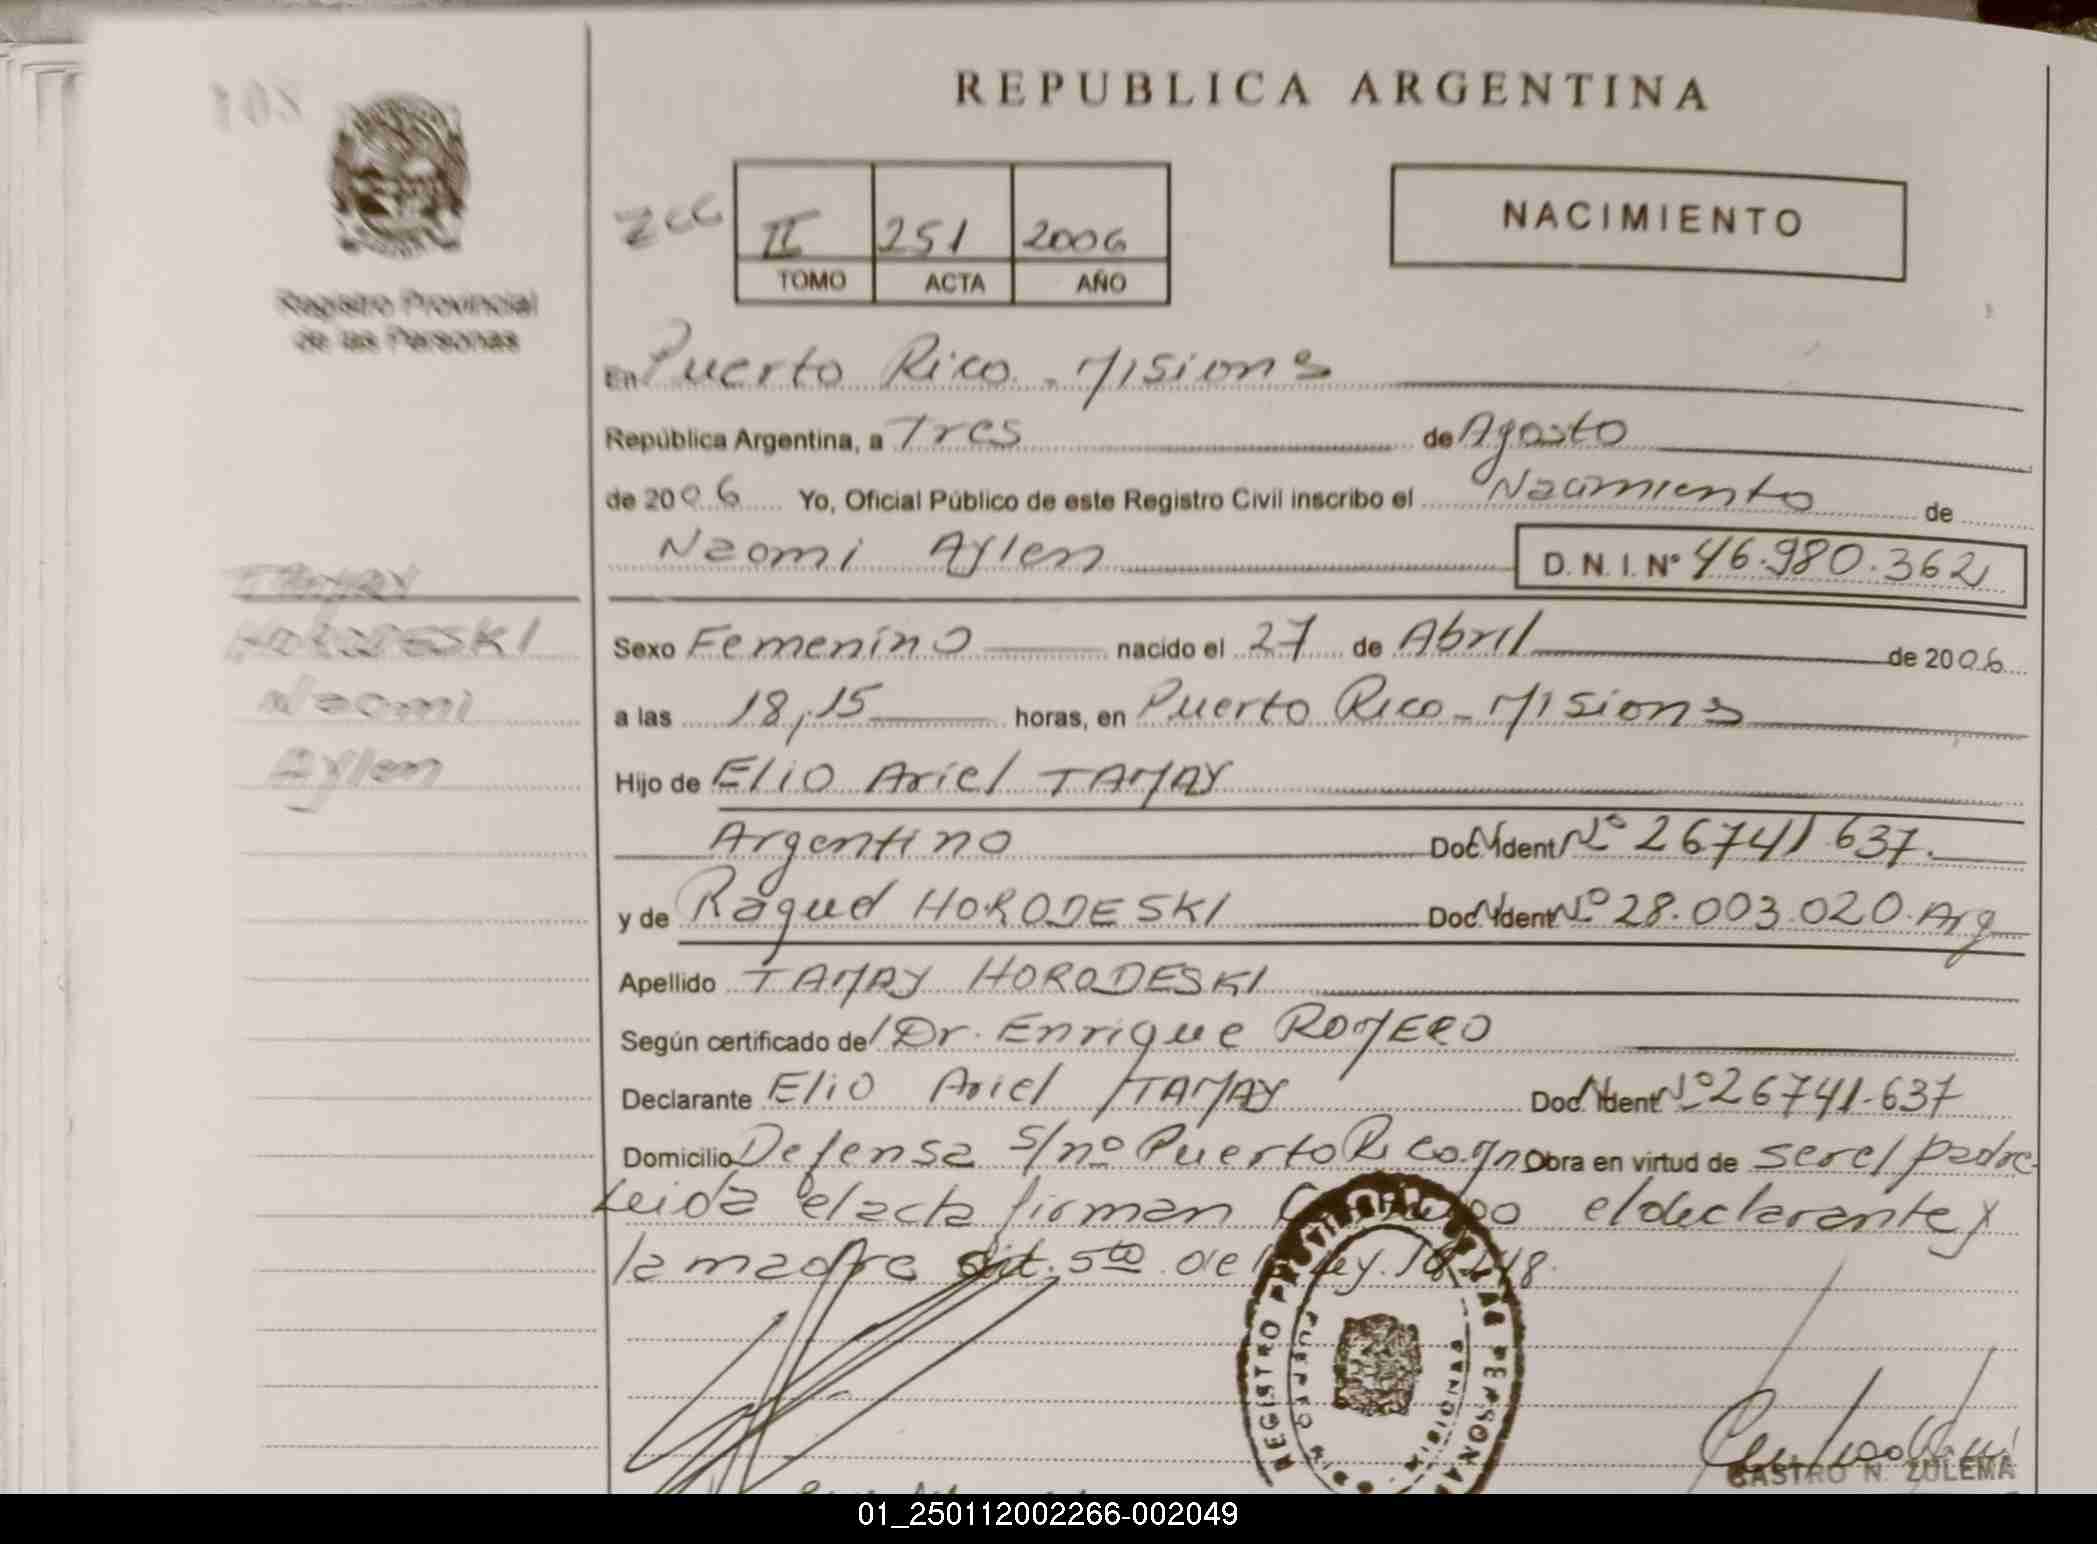 108
REPUBLICA ARGENTINA
NACIMIENTO
II 251 2006
TOMO ACTA AÑO
Registro Provincial
de las Personas
En Puerto Rico - Misiones
República Argentina, a Tres de Agosto
de 2006 Yo, Oficial Público de este Registro Civil inscribo el Nacimiento de
Naomi Aylen D. N. I. Nº 46.980.362
TAMAY
HORODESKI
Naomi
Aylen
Sexo Femenino nacido el 27 de Abril de 2006
a las 18,15 horas, en Puerto Rico - Misiones
Hijo de Elio Ariel TAMAY
Argentino Doc. Ident Nº 26741637.
y de Raquel HORODESKI Doc. Ident Nº 28.003.020. Arg
Apellido TAMAY HORODESKI
Según certificado del Dr. Enrique ROMERO
Declarante Elio Ariel TAMAY Doc. Ident Nº 26741.637
Domicilio Defensa S/nº Puerto Rico Mn Obra en virtud de ser el padre
Leida el acta firman el declarante y
la madre art. 5to de Ley 18248.
REGISTRO PROVINCIAL DE LAS PERSONAS
PUERTO RICO
MISIONES
CASTRO N. ZULEMA
01_250112002266-002049